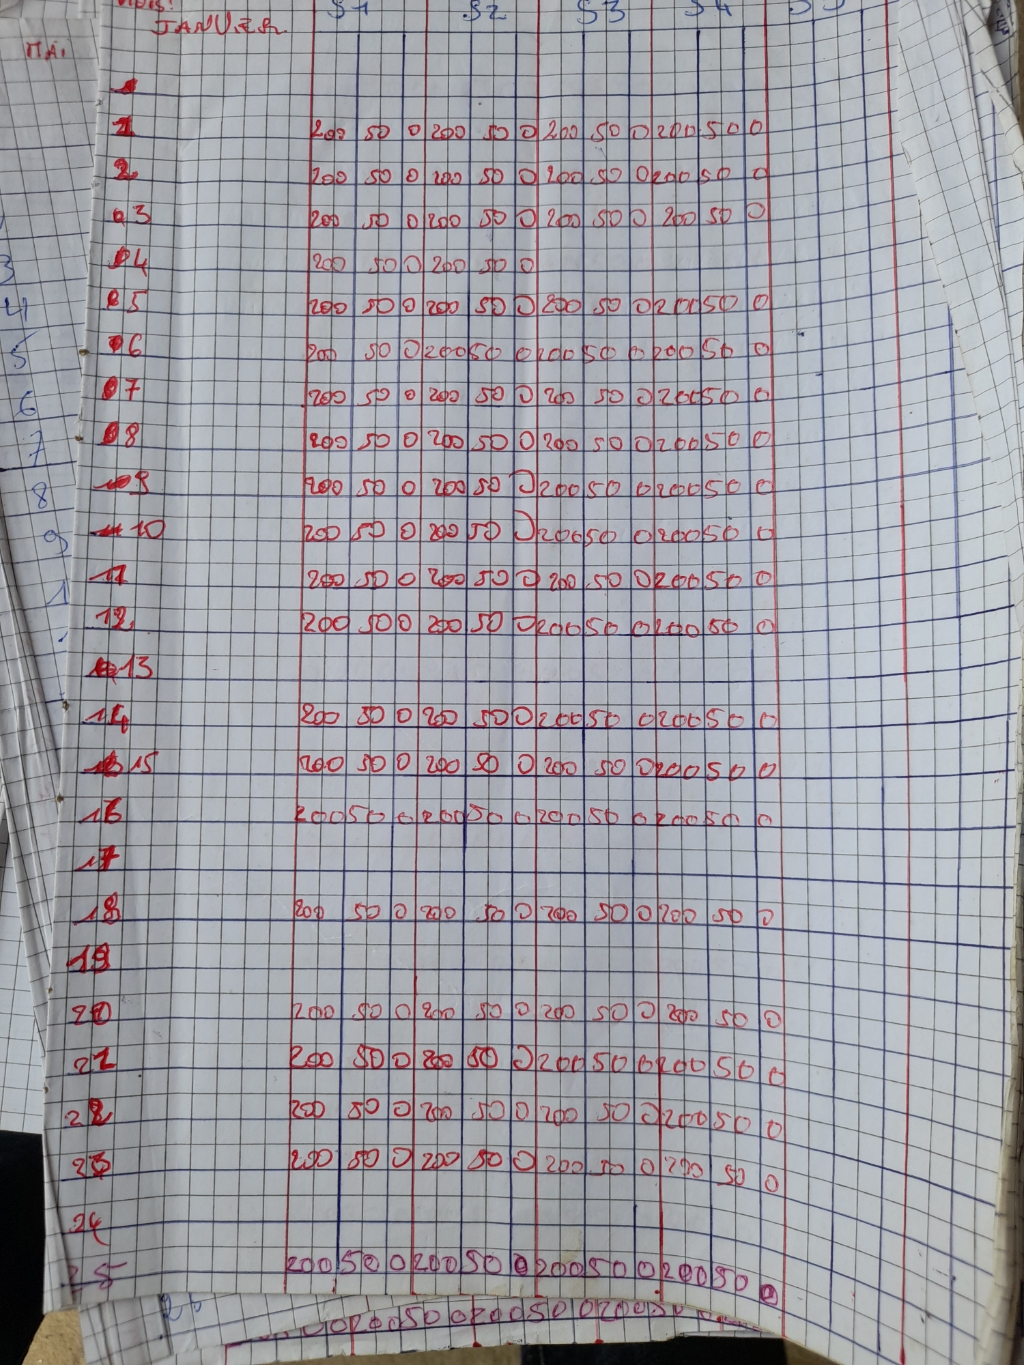 MOIS:
JANVIER S1 S2 S3 S4 S5
MAI
1 200 50 0 200 50 0 200 50 0 200 50 0
2 200 50 0 200 50 0 200 50 0 200 50 0
3 200 50 0 200 50 0 200 50 0 200 50 0
4 200 50 0 200 50 0
5 200 50 0 200 50 0 200 50 0 200 50 0
6 200 50 0 200 50 0 200 50 0 200 50 0
7 200 50 0 200 50 0 200 50 0 200 50 0
8 200 50 0 200 50 0 200 50 0 200 50 0
9 200 50 0 200 50 0 200 50 0 200 50 0
10 200 50 0 200 50 0 200 50 0 200 50 0
11 200 50 0 200 50 0 200 50 0 200 50 0
12 200 50 0 200 50 0 200 50 0 200 50 0
13
14 200 50 0 200 50 0 200 50 0 200 50 0
15 200 50 0 200 50 0 200 50 0 200 50 0
16 200 50 0 200 50 0 200 50 0 200 50 0
17
18 200 50 0 200 50 0 200 50 0 200 50 0
19
20 200 50 0 200 50 0 200 50 0 200 50 0
21 200 50 0 200 50 0 200 50 0 200 50 0
22 200 50 0 200 50 0 200 50 0 200 50 0
23 200 50 0 200 50 0 200 50 0 200 50 0
24
25 200 50 0 200 50 0 200 50 0 200 50 0
3
4
5
6
7
8
9